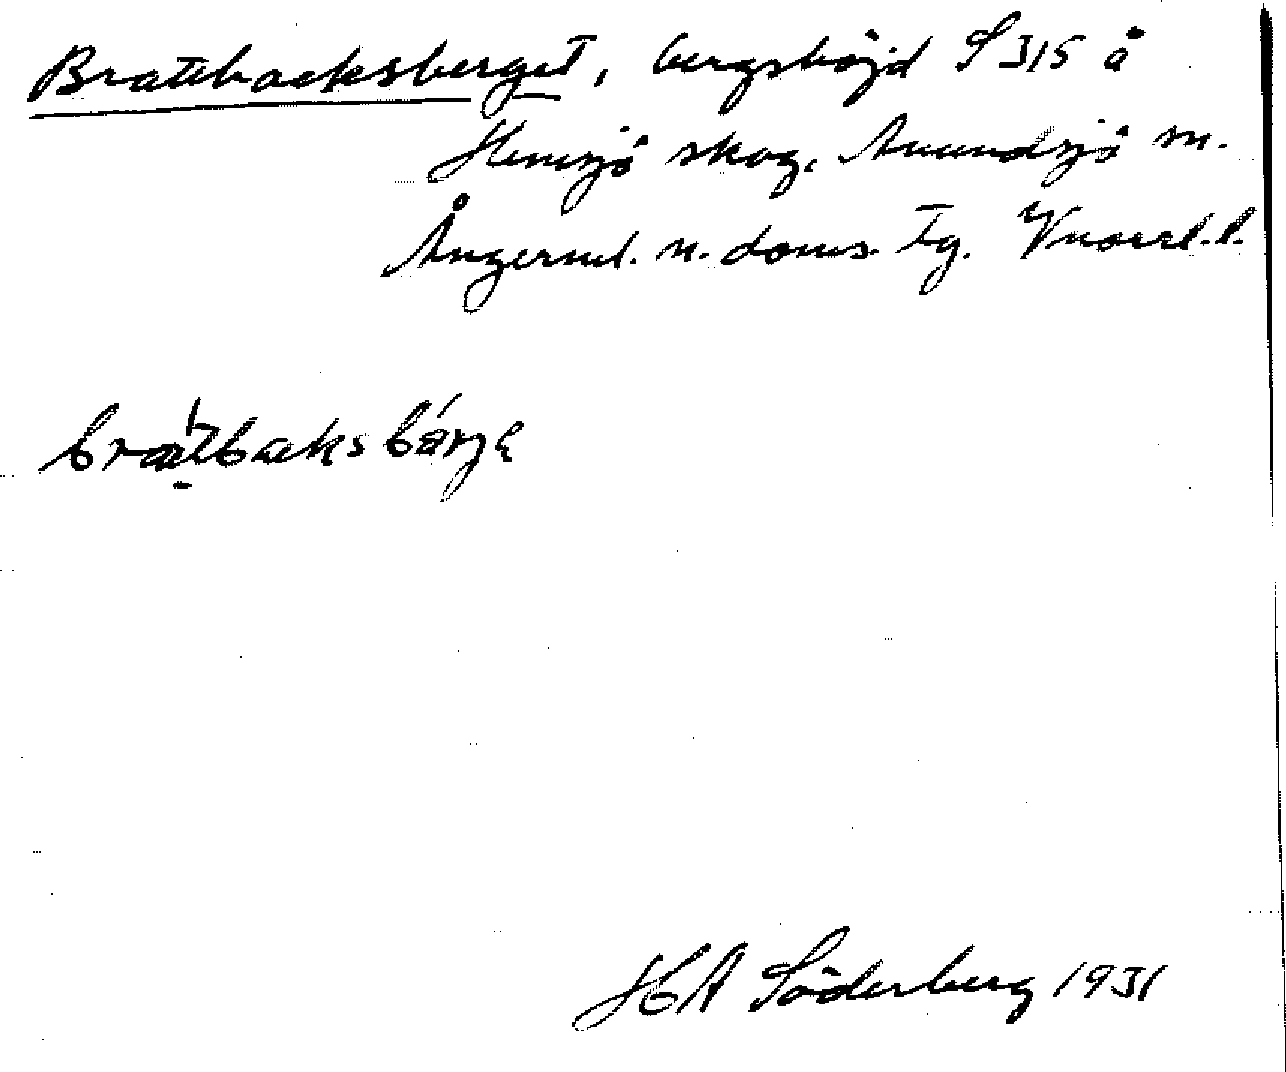 Brattbacksberget, bergshöjd S 315 å
Hemsjö skog, Anundsjö sn.
Ångerml. n. doms. Tg. Vnorrl. l.
bratbaksbärje
HA Söderberg 1931